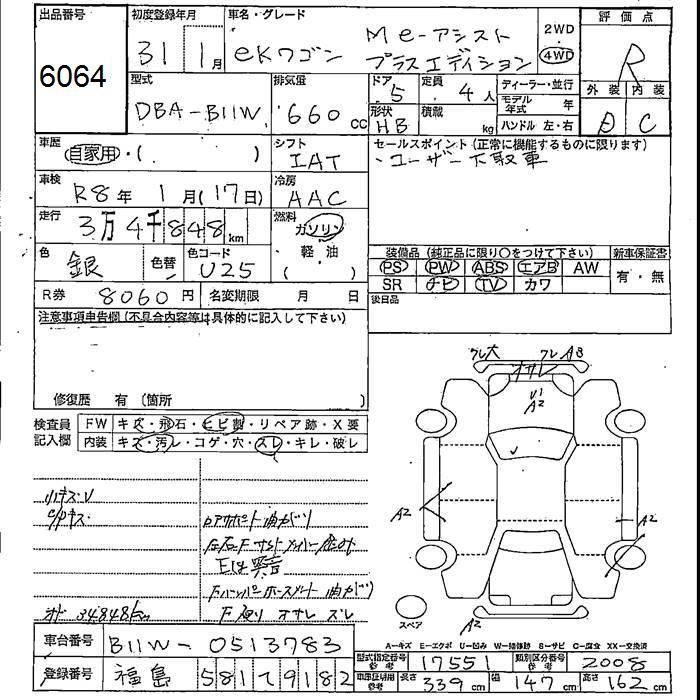 出品番号
6064
初度登録年月
31 1月
車名・グレード
eKワゴン
Me-アシスト
プラスエディション
2WD
4WD
評価点
R
外装 内装
D C
型式
DBA-B11W
排気量
660cc
ドア
5
定員
4人
形状
HB
積載
kg
ディーラー・並行
モデル年式 年
ハンドル 左・右
車歴
自家用・( )
シフト
IAT
セールスポイント (正常に機能するものに限ります)
・ユーザー下取車
車検
R8年 1月(17日)
冷房
AAC
走行
3万4千848km
燃料
ガソリン
軽・油
( )
色
銀
色替
色コード
U25
装備品 (純正品に限り〇をつけて下さい)
新車保証書
PS PW ABS エアB AW
有・無
SR ナビ TV カワ
R券 8060円
名変期限 月 日
後日品
注意事項申告欄 (不具合内容等は具体的に記入して下さい)
修復歴 有 (箇所
検査員記入欄
FW キズ・飛石・ヒビ割・リペア跡・X要
内装 キズ・汚レ・コゲ・穴・スレ・キレ・破レ
クレ大
クレ A3
オサレ
U1
A2
A2
A2
A2
スペア
リヤキズ・U
左右Fサイドメンバー
F廻り オサレ ズレ
オドー 34848km
A-キズ E-エクボ U-凹み W-補修跡 S-サビ C-腐食 XX-交換済
車台番号
B11W-0513783
登録番号
福島 581 て 9182
型式指定番号 参考
17551
類別区分番号 参考
2008
車庫証明用 参考
長さ 339cm 幅 147cm 高さ 162cm